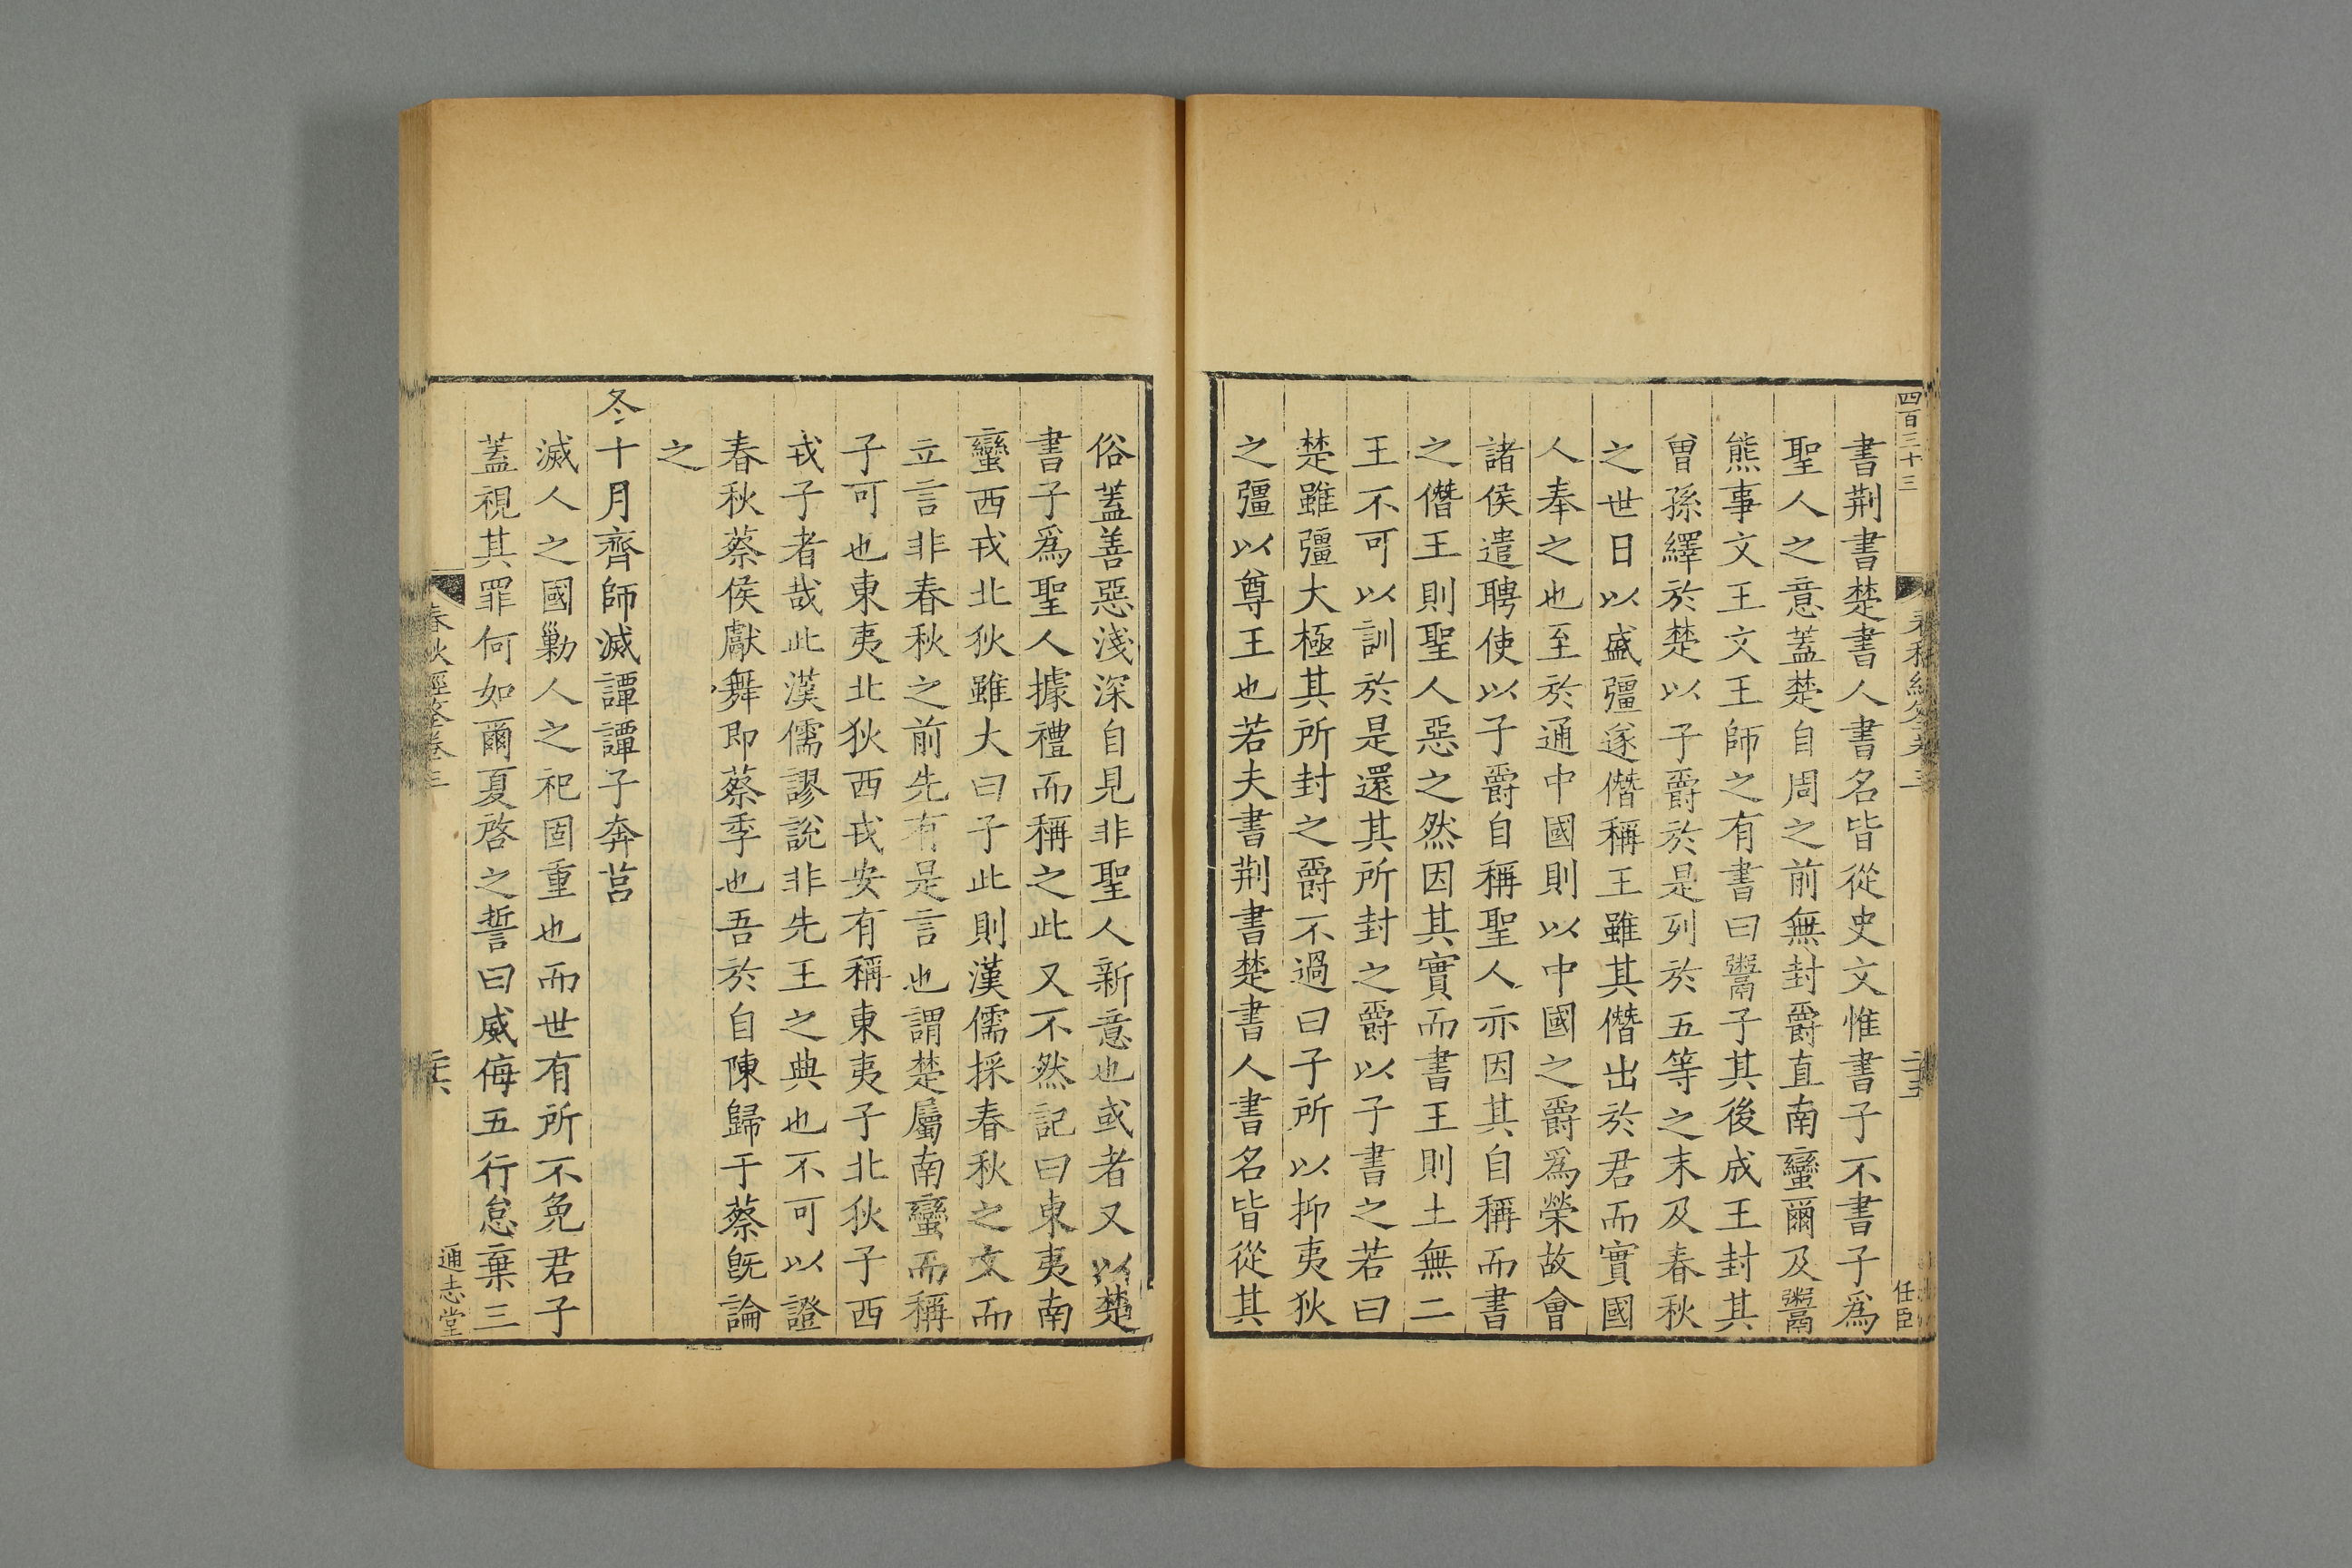 四百三十三
書荆書楚書人書名皆從史文惟書子不書子爲
聖人之意蓋楚自周之前無封爵直南蠻爾及鬻
熊事文王文王師之有書曰鬻子其後成王封其
曾孫繹於楚以子爵於是列於五等之末及春秋
之世日以盛彊遂僭稱王雖其僭出於君而實國
人奉之也至於通中國則以中國之爵爲榮故會
諸侯遣聘使以子爵自稱聖人亦因其自稱而書
之僭王則聖人惡之然因其實而書王則土無二
王不可以訓於是還其所封之爵以子書之若曰
楚雖彊大極其所封之爵不過曰子所以抑夷狄
之彊以尊王也若夫書荆書楚書人書名皆從其
俗蓋善惡淺深自見非聖人新意也或者又以楚
書子爲聖人據禮而稱之此又不然記曰東夷南
蠻西戎北狄雖大曰子此則漢儒採春秋之文而
立言非春秋之前先有是言也謂楚屬南蠻而稱
子可也東夷北狄西戎安有稱東夷子北狄子西
戎子者哉此漢儒謬說非先王之典也不可以證
春秋蔡侯獻舞即蔡季也吾於自陳歸于蔡旣論
之
冬十月齊師滅譚譚子奔莒
滅人之國勦人之祀固重也而世有所不免君子
蓋視其罪何如爾夏啓之誓曰威侮五行怠棄三
春秋經筌卷三
二十六
通志堂